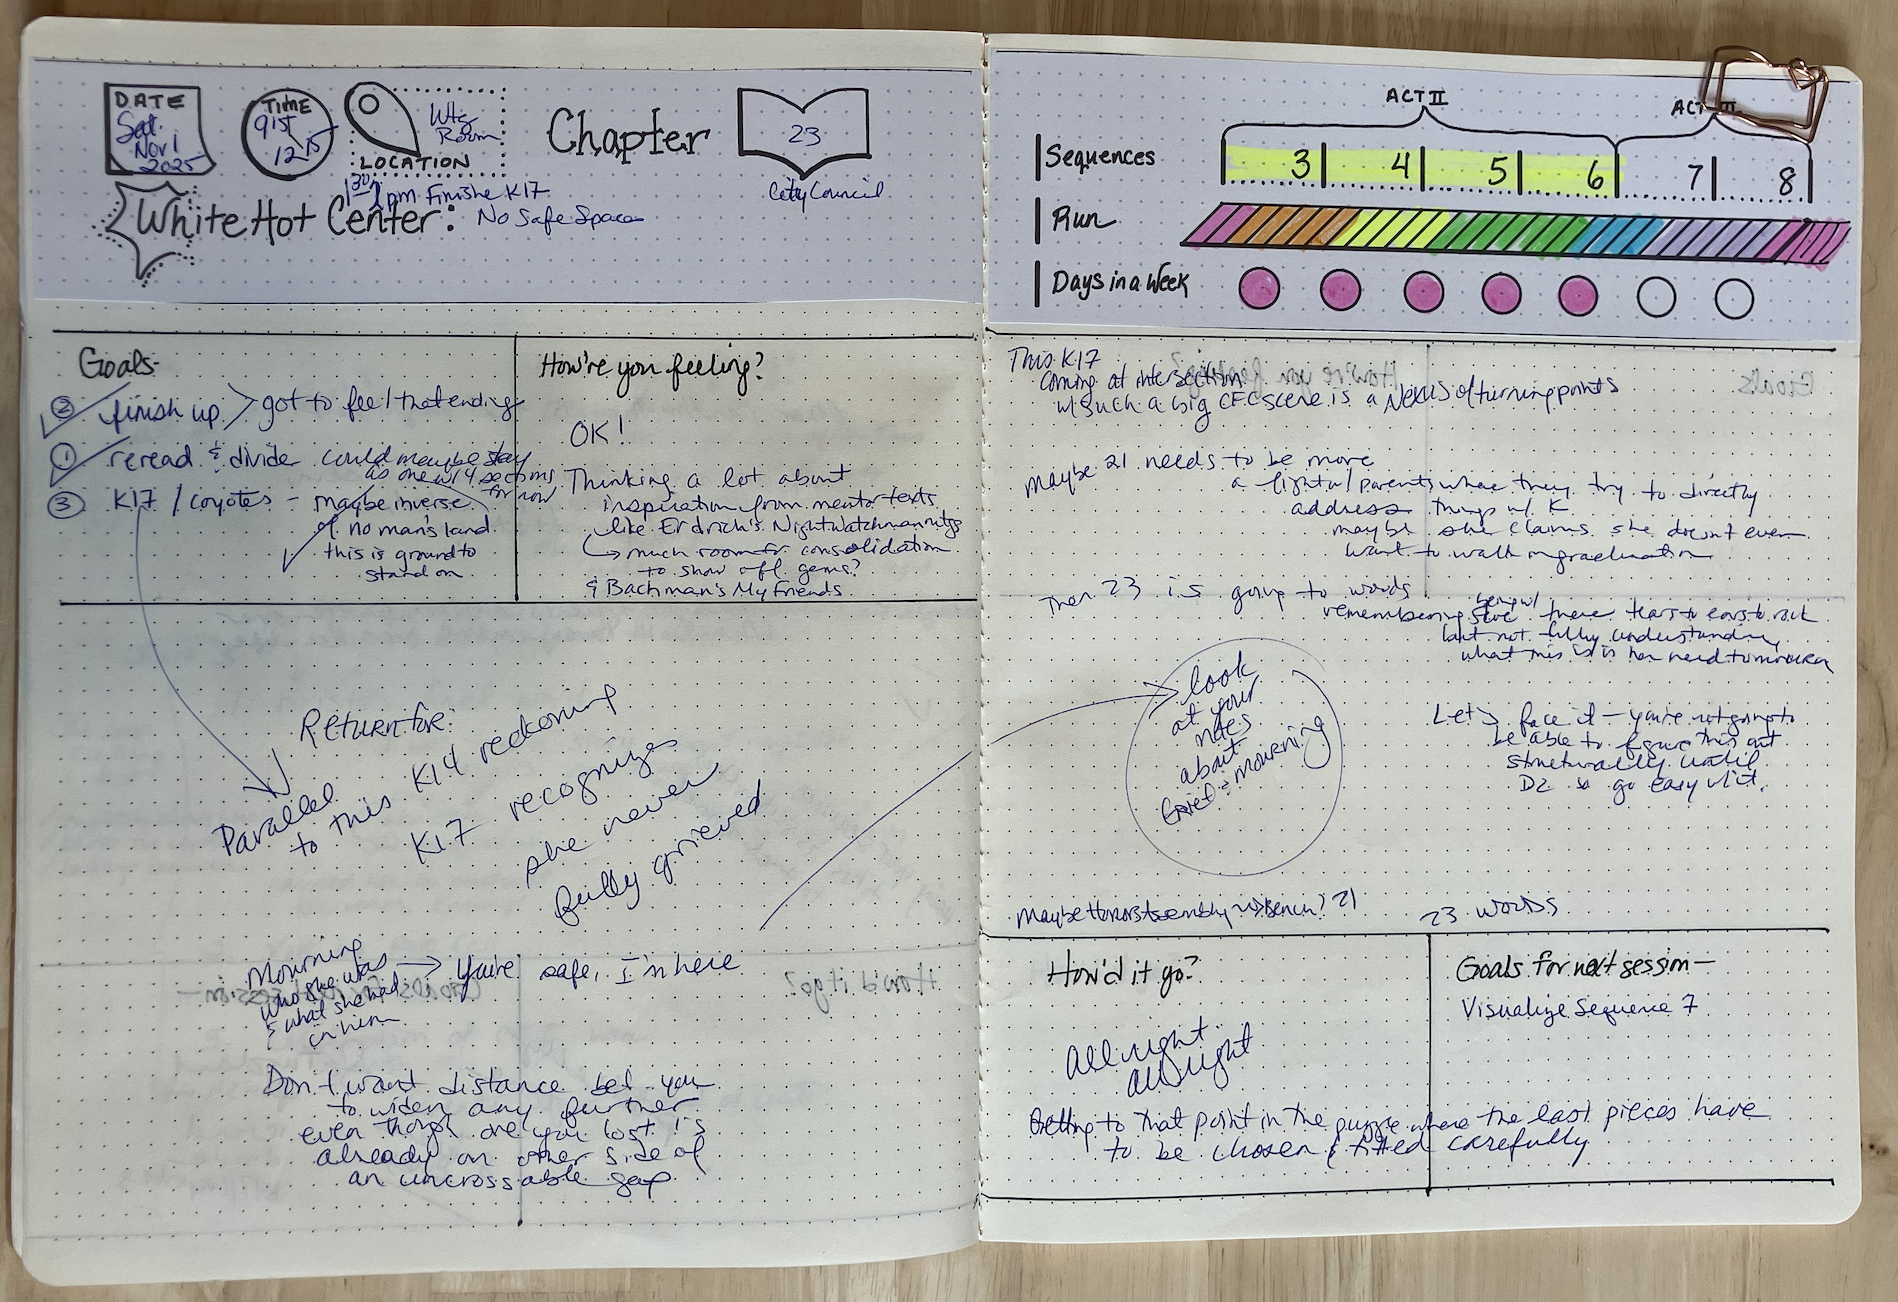 DATE
Sat.
Nov 1
2025
TIME
915
1215
LOCATION
Wtg
Room
Chapter
23
City Council
130
2pm Finishe K17
White Hot Center: No Safe Spaces
ACT II
ACT
Sequences 3 4 5 6 7 8
Run
Days in a Week
Goals-
② finish up > got to feel that ending
① reread & divider could maybe stay
as one w/ 4 sections
for now
③ K17 / coyotes - maybe inverse
of no man's land
this is ground to
stand on
How're you feeling?
OK!
Thinking a lot about
inspiration from mentor texts
like Erdrich's Night Watchman
↳ much room for consolidation
to show off gems?
& Bachman's My Friends
Return for:
Parallel
to this K14 reckoning
K17 recognizes
she never
fully grieved
Mourning
who she was
& what she had
in him
→ You're safe, I'm here
Don't want distance bet you
to widen any further
even though one you lost is
already on other side of
an uncrossable gap
This K17
coming at intersection
w/ such a big CFC scene is a Nexus of turning points
Maybe 21 needs to be more
a fight w/ parents where they try to directly
address things w/ K
maybe she claims she doesn't even
want to walk in graduation
Then 23 is going to words
remembering there tears to ears to rock
but not fully understanding
what this is is her need to mourn
look
at your
notes
about
Grief & mourning
Let's face it - you're not going to
be able to figure this out
structurally until
D2 so go easy
Maybe Honors Assembly → Bench? 21
23 words
How'd it go?
All right
all right
Getting to that point in the puzzle where the last pieces have
to be chosen & fitted carefully
Goals for next session-
Visualize Sequence 7